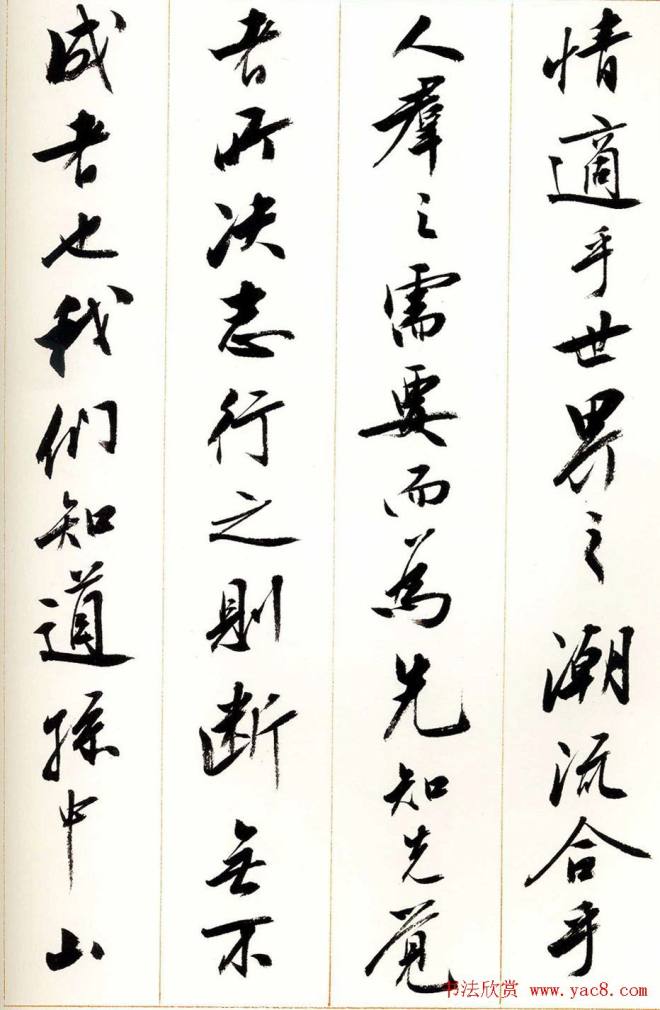 情適乎世界之潮流合乎
人羣之需要而為先知先覚
者所决志行之则断無不
成者也我们知道孫中山
书法欣赏 www.yac8.com